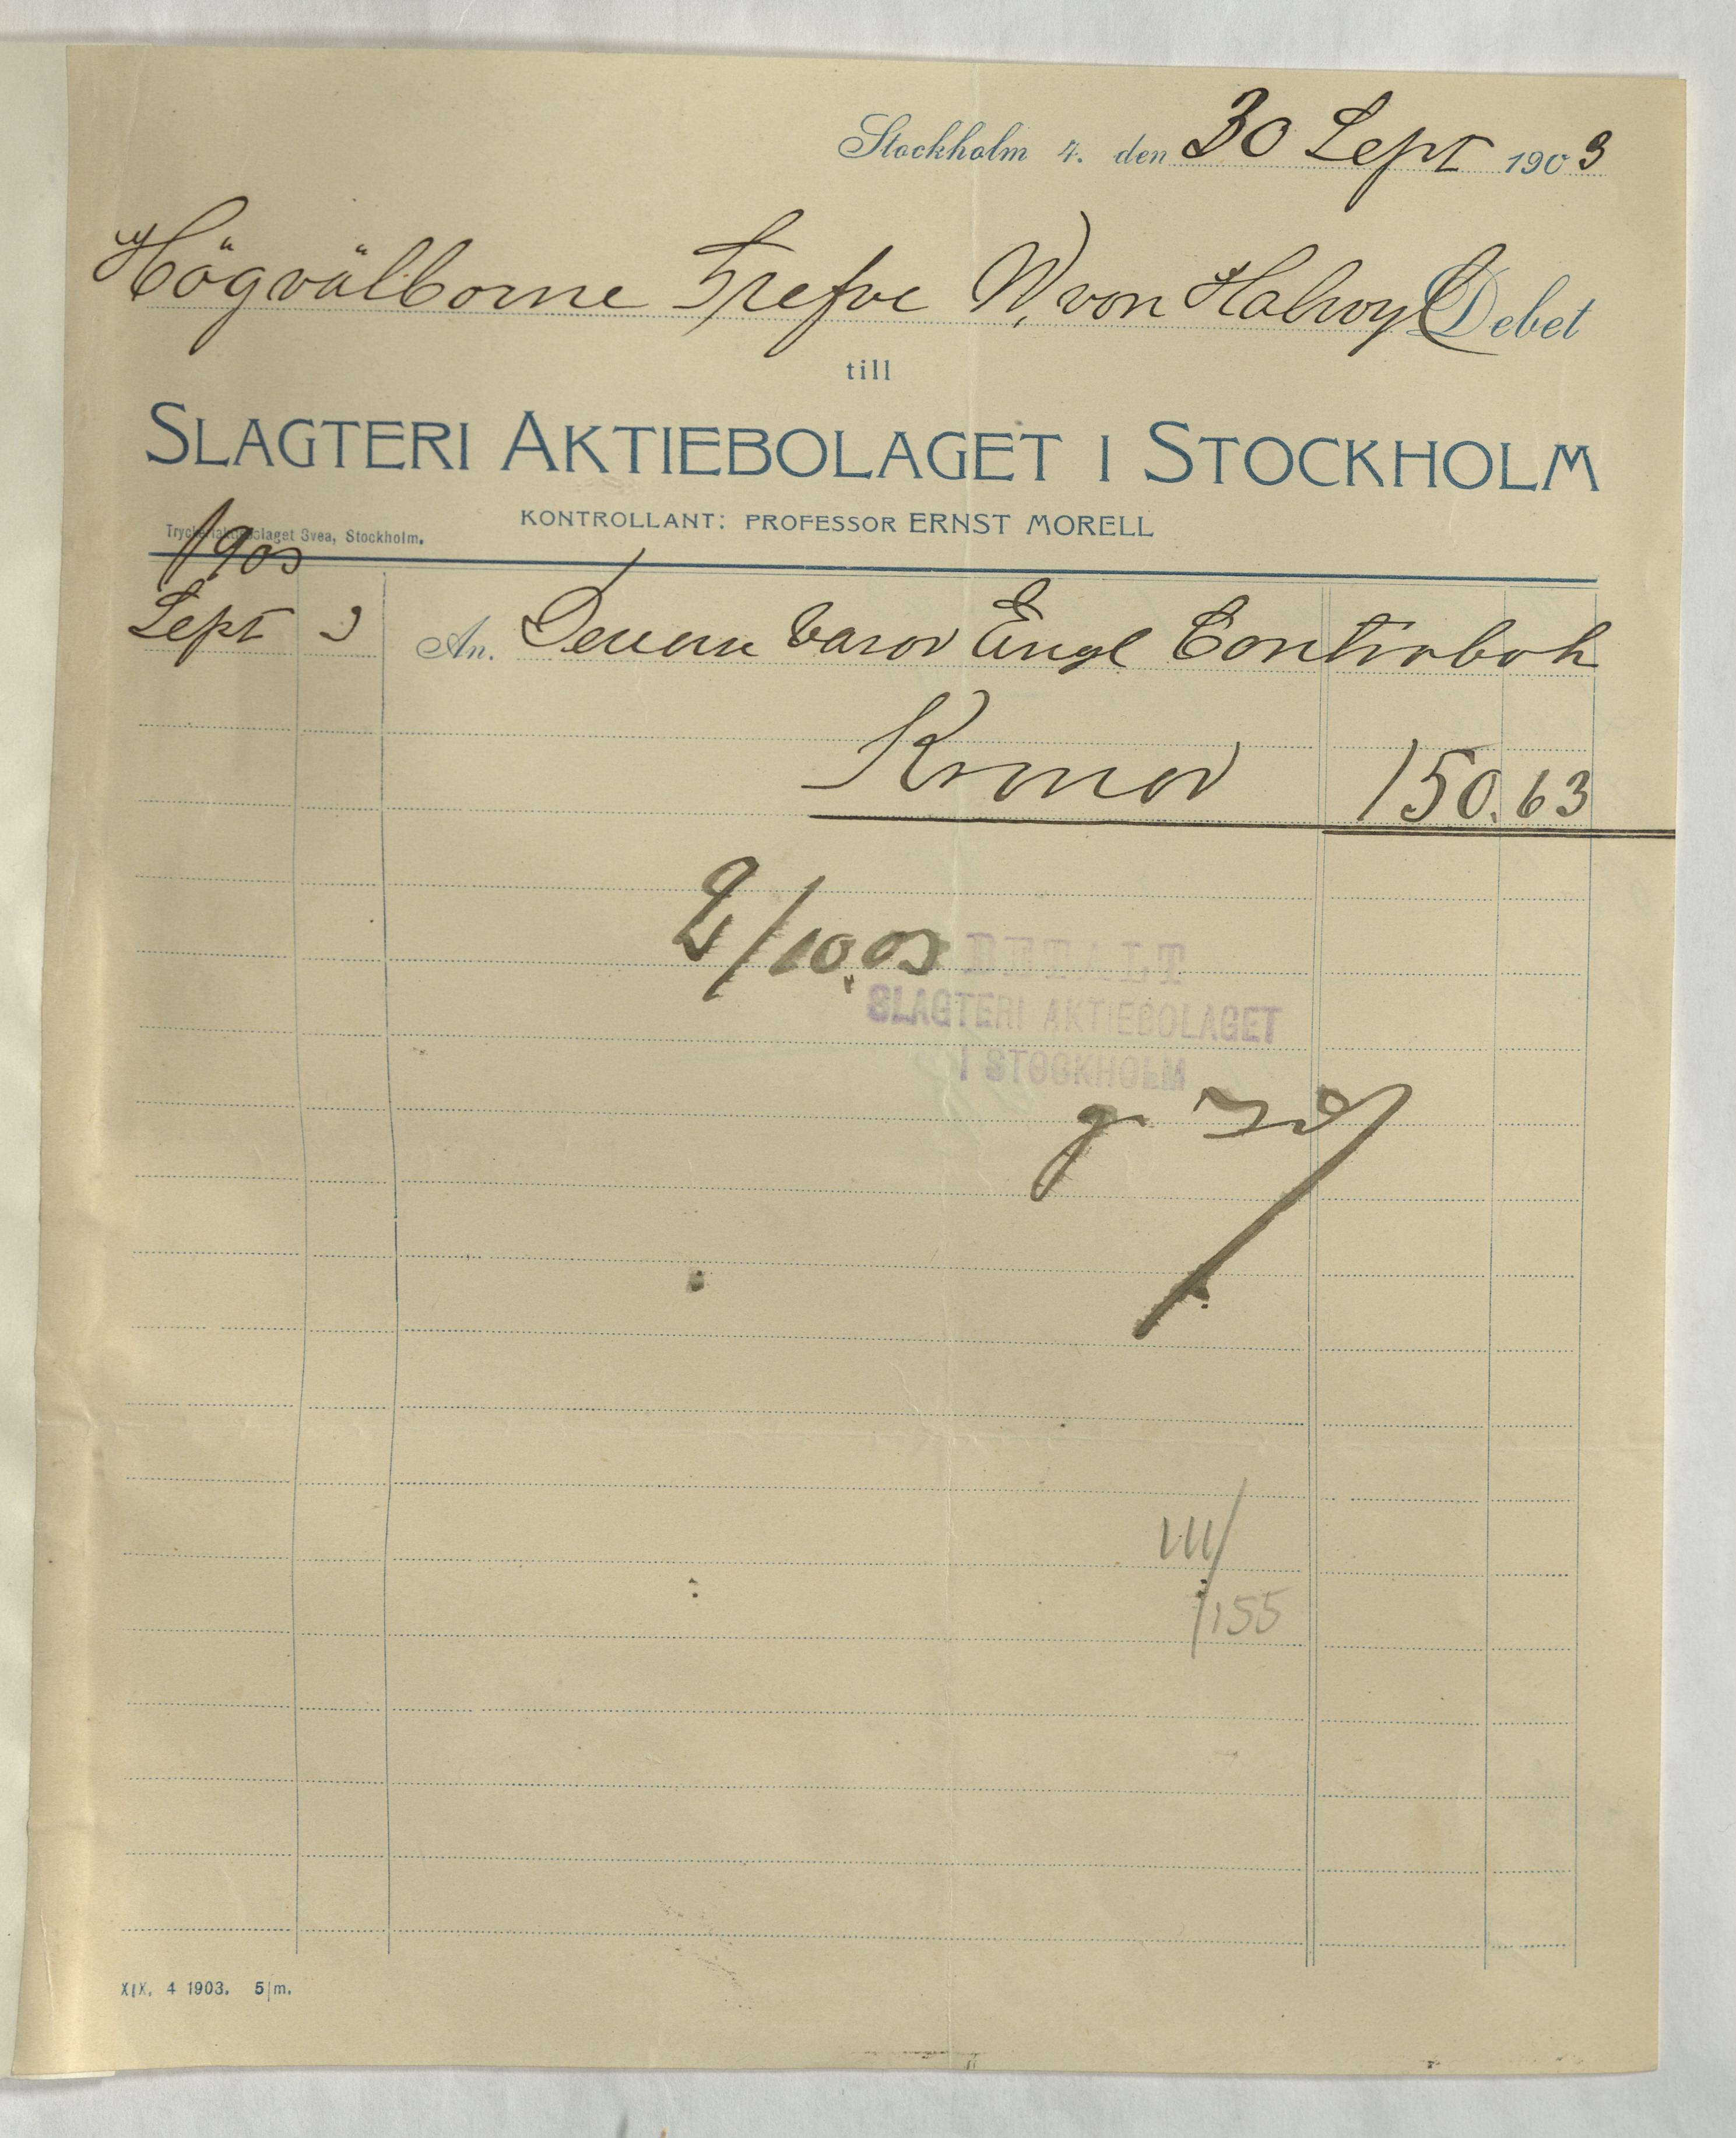 Stockholm 4. den 30 Sept 1903
Högvälborne Grefve W. von Halwyl Debet
till
SLAGTERI AKTIEBOLAGET I STOCKHOLM
KONTROLLANT: PROFESSOR ERNST MORELL
Tryckeriaktiebolaget Svea, Stockholm.
1903
Sept 3 An. varor Engl Contrabok
Kronor 150.63
2/10.03 BETALT
SLAGTERI AKTIEBOLAGET
I STOCKHOLM
III/
155
XIX. 4 1903. 5/m.